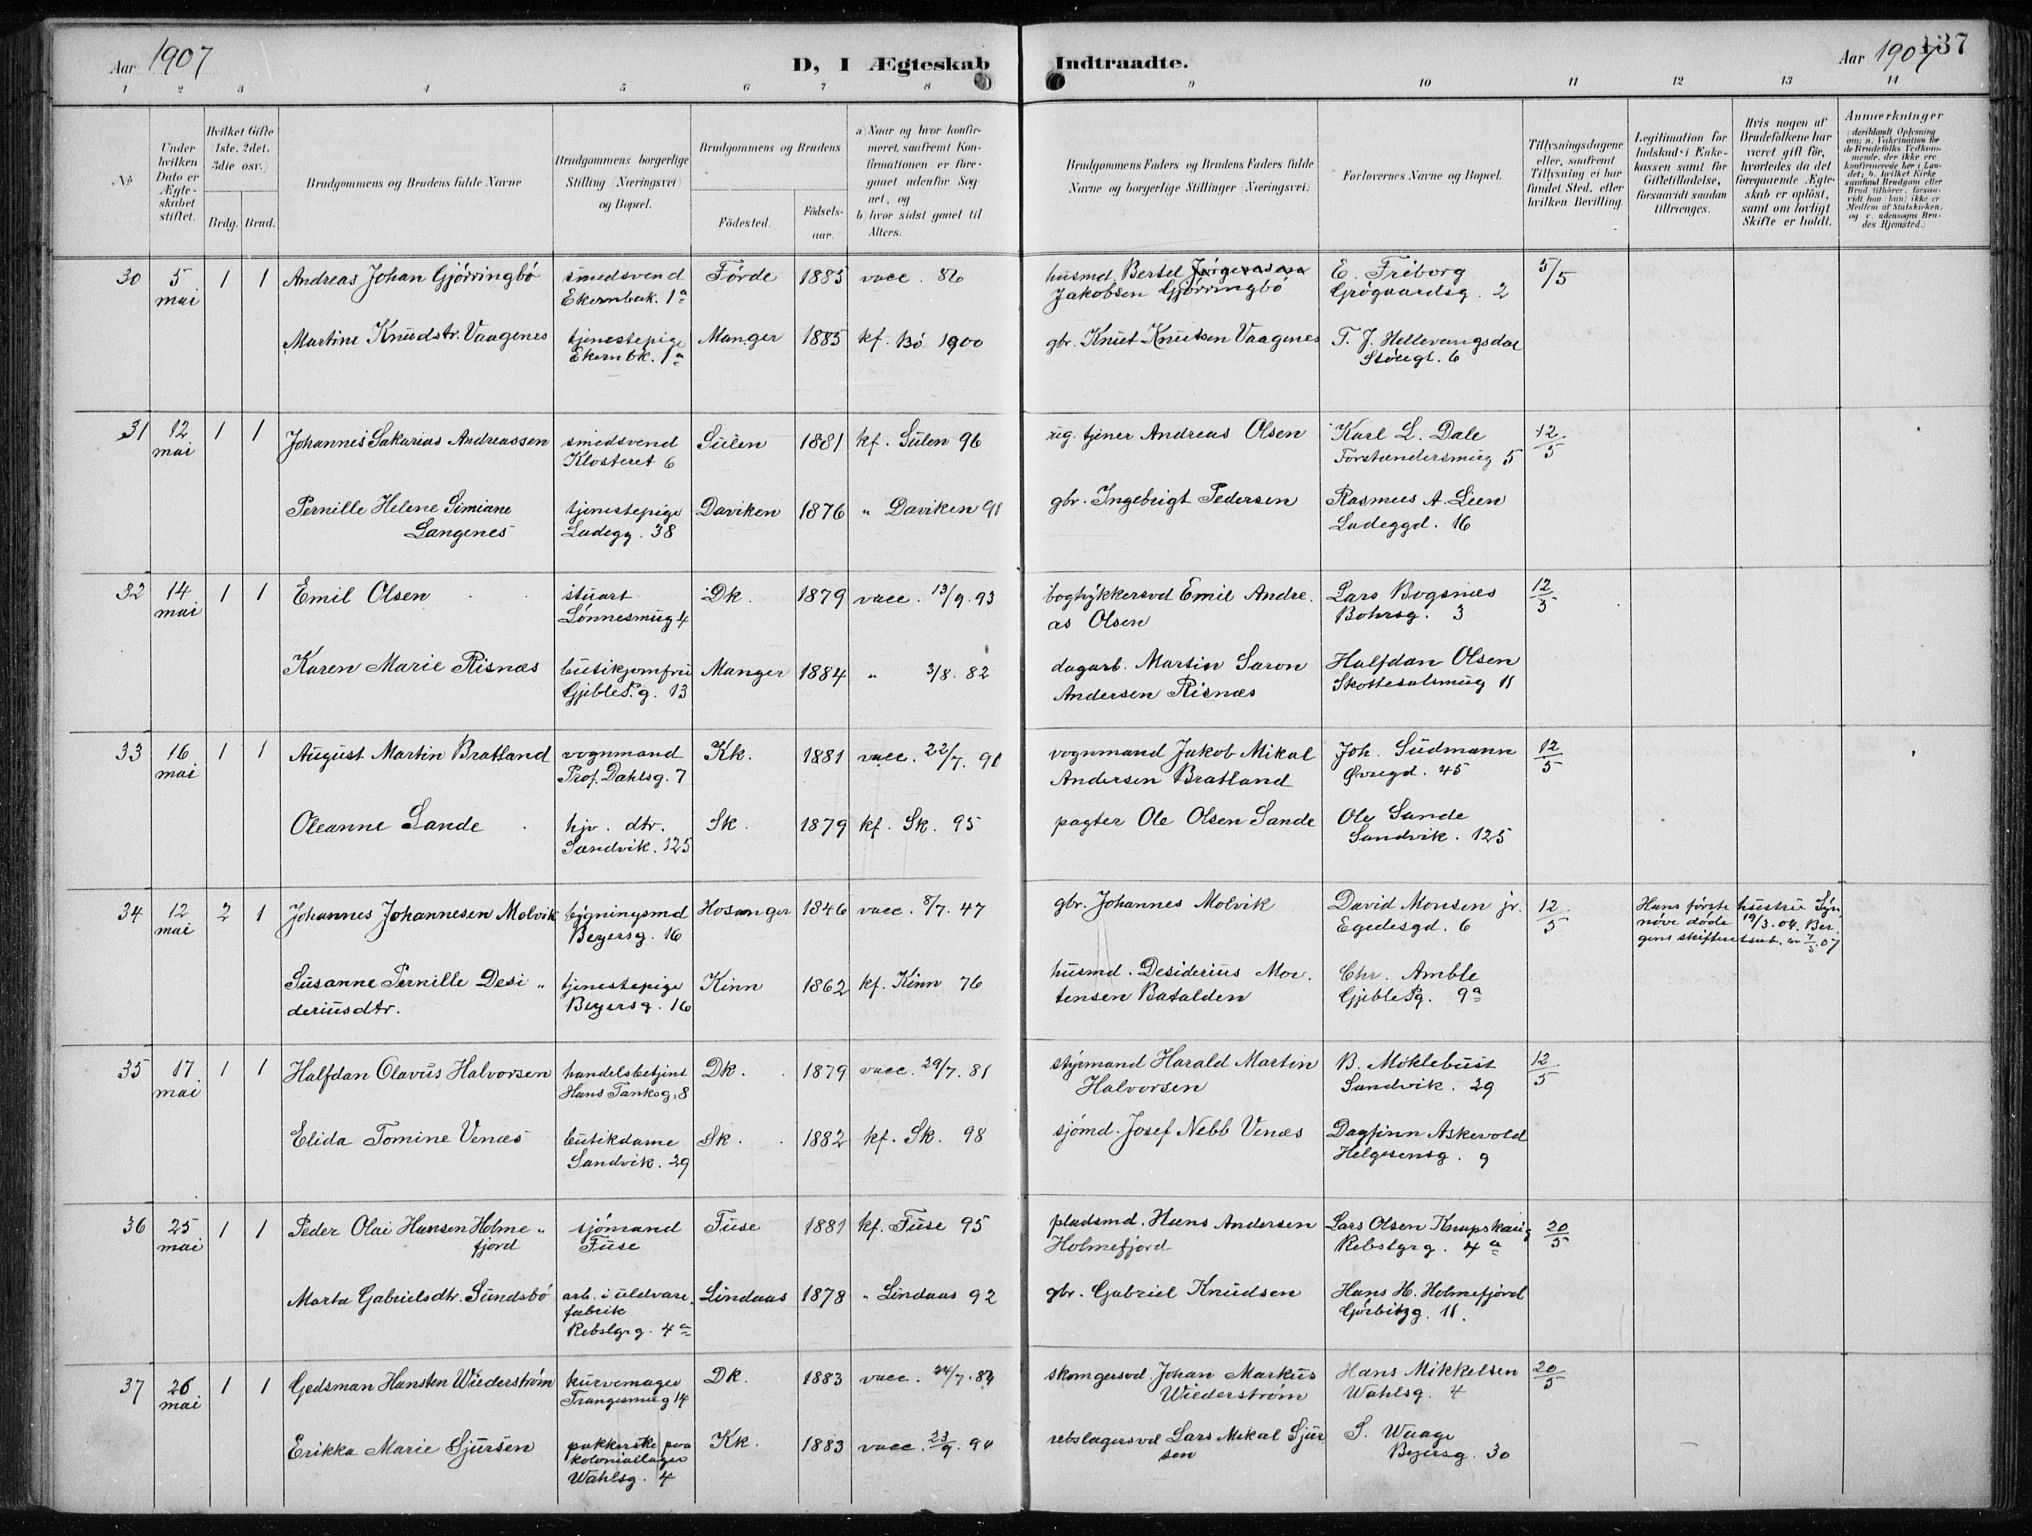 Aar 1907
D, I Ægteskab Indtraadte.
Aar 1907
137
1 2 3 4 5 6 7 8 9 10 11 12 13 14
No.
Under hvilken Dato er Ægteskabet stiftet.
Hvilket Gifte (1ste, 2det, 3die osv.)
Brdg. Brud.
Brudgommens og Brudens fulde Navne
Brudgommens borgerlige Stilling (Næringsvei) og Bopæl.
Brudgommens og Brudens
Födested.
Födselsaar.
a) Naar og hvor konfirmeret, saafremt Konfirmationen er foregaaet udenfor Sognet, og
b) hvor sidst gaaet til Alters.
Brudgommens Faders og Brudens Faders fulde Navne og borgerlige Stillinger (Næringsvei).
Forlovernes Navne og Bopæl.
Tillysningsdagene eller, saafremt Tillysning ei har fundet Sted, efter hvilken Bevilling.
Legitimation for Indskud i Enkekassen samt for Giftetilladelse, forsaavidt saadan tiltrænges.
Hvis nogen af Brudefolkene har været gift før, hvorledes da det foregaaende Ægteskab er oplöst, samt om lovligt Skifte er holdt.
Anmærkninger
(deriblandt Oplysning om: a. Vakcination for de Brudefolks Vedkommende, der ikke ere konfirmerede her i Landet; b. hvilket Kirkesamfund Brudgom eller Brud tilhører, forsaavidt han (hun) ikke er Medlem af Statskirken, og c. udensogns Brudes Hjemsted.)
30 5 mai 1 1 Andreas Johan Gjörringbö smedsvend Ekernbak. 1a Förde 1885 vacc. 86 husmd. Bertel Jakobsen Gjörringbö E. Friborg Grögaardsg. 2 5/5
Martine Knudstr. Vaagenes tjenestepige Ekernbk. 1a Manger 1885 kf. Bö 1900 gbr. Knut Knutsen Vaagenes T. J. Hellevangsdal Stöugt. 6
31 12 mai 1 1 Johannes Sakarias Andreassen smedsvend Klosteret 6 Sulen 1881 kf. Sulen 96 ug. tjener Andreas Olsen Karl L. Dale Forstandersmug 5 12/5
Pernille Helene Simiane Langenes tjenestepige Ladegg. 38 Daviken 1876 " Daviken 91 gbr. Ingebrigt Pedersen Rasmus A. Lien Ladeggd. 16
32 14 mai 1 1 Emil Olsen stuart Lønnesmug 4 Dk. 1879 vacc. 13/9. 93 bogtrykkersvd Emil Andreas Olsen Lars Bogsnes Bohrsg. 3 12/5
Karen Marie Risnæs butikjomfru Gjeble P. g. 13 Manger 1884 " 3/8. 82 dagarb. Martin Saron Andersen Risnæs Halfdan Olsen Skottesalsmug 11
33 16 mai 1 1 August Martin Bratland vognmand Prof. Dahlsg. 7 Kk. 1881 vacc. 22/7. 91 vognmand Jakob Mikal Andersen Bratland Joh. Sudmann Øvregd. 45 12/5
Oleanne Sande hjv. dtr. Sandvik. 125 Sk. 1879 kf. Sk. 95 pagter Ole Olsen Sande Ole Sande Sandvik. 125
34 12 mai 2 1 Johannes Johannesen Molvik bygningsmd Beyersg. 16 Hosanger 1846 vacc. 8/7. 47 gbr. Johannes Molvik David Monsen jr. Egedesgd. 6 12/5 Hans første hustru Synnøve døde 19/3. 04. Bergens skifteretsat. av 7/5. 07
Susanne Pernille Desideriusdtr. tjenestepige Beyersg. 16 Kinn 1862 kf. Kinn 76 husmd. Desiderius Mortensen Batalden Chr. Amble Gjeble Pg. 9a
35 17 mai 1 1 Halfdan Olavus Halvorsen handelsbetjent Hans Tanksg. 8 Dk. 1879 vacc. 29/7. 81 styrmand Harald Martin Halvorsen B. Möklebust Sandvik. 29 12/5
Elida Tomine Venæs butikdame Sandvik. 29 Sk. 1882 kf. Sk. 98 sjömd. Josef Nebb Venæs Dagfinn Askevold Helgesensg. 9
36 25 mai 1 1 Peder Olai Hansen Holmefjord sjömand Fuse Fuse 1881 kf. Fuse 95 pladsmd. Hans Andersen Holmefjord Lars Olsen Knapskaug Rebslgrg. 4a 20/5
Marta Gabrielsdtr. Sundsbö arb. i uldvarefabrik Rebslgrg. 4a Lindaas 1878 " Lindaas 92 gbr. Gabriel Knudsen Hans H. Holmefjord Görbitzg. 11.
37 26 mai 1 1 Gedsman Hansten Wiederstrøm kurvemager Trangesmug 14 Dk. 1883 vacc. 24/7. 84 skomgersvd. Johan Markus Wiederstrøm Hans Mikkelsen Wahlsg. 4 20/5
Erikka Marie Sjursen pakkerske paa koloniallager Wahlsg. 4 Kk. 1883 vacc. 23/9. 94 rebslagersvd Lars Mikal Sjursen S. Waage Beyersg. 30